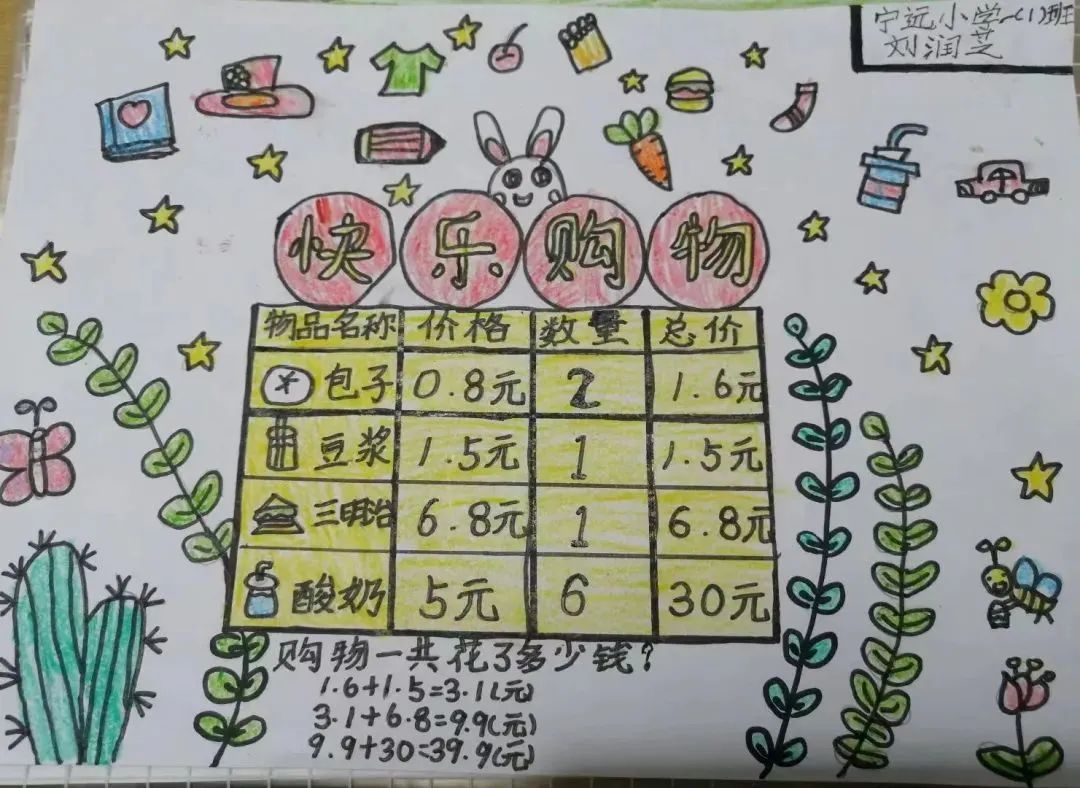 宁远小学一(1)班
刘润芝
快乐购物
物品名称 价格 数量 总价
包子 0.8元 2 1.6元
豆浆 1.5元 1 1.5元
三明治 6.8元 1 6.8元
酸奶 5元 6 30元
购物一共花了多少钱?
1.6+1.5=3.1(元)
3.1+6.8=9.9(元)
9.9+30=39.9(元)